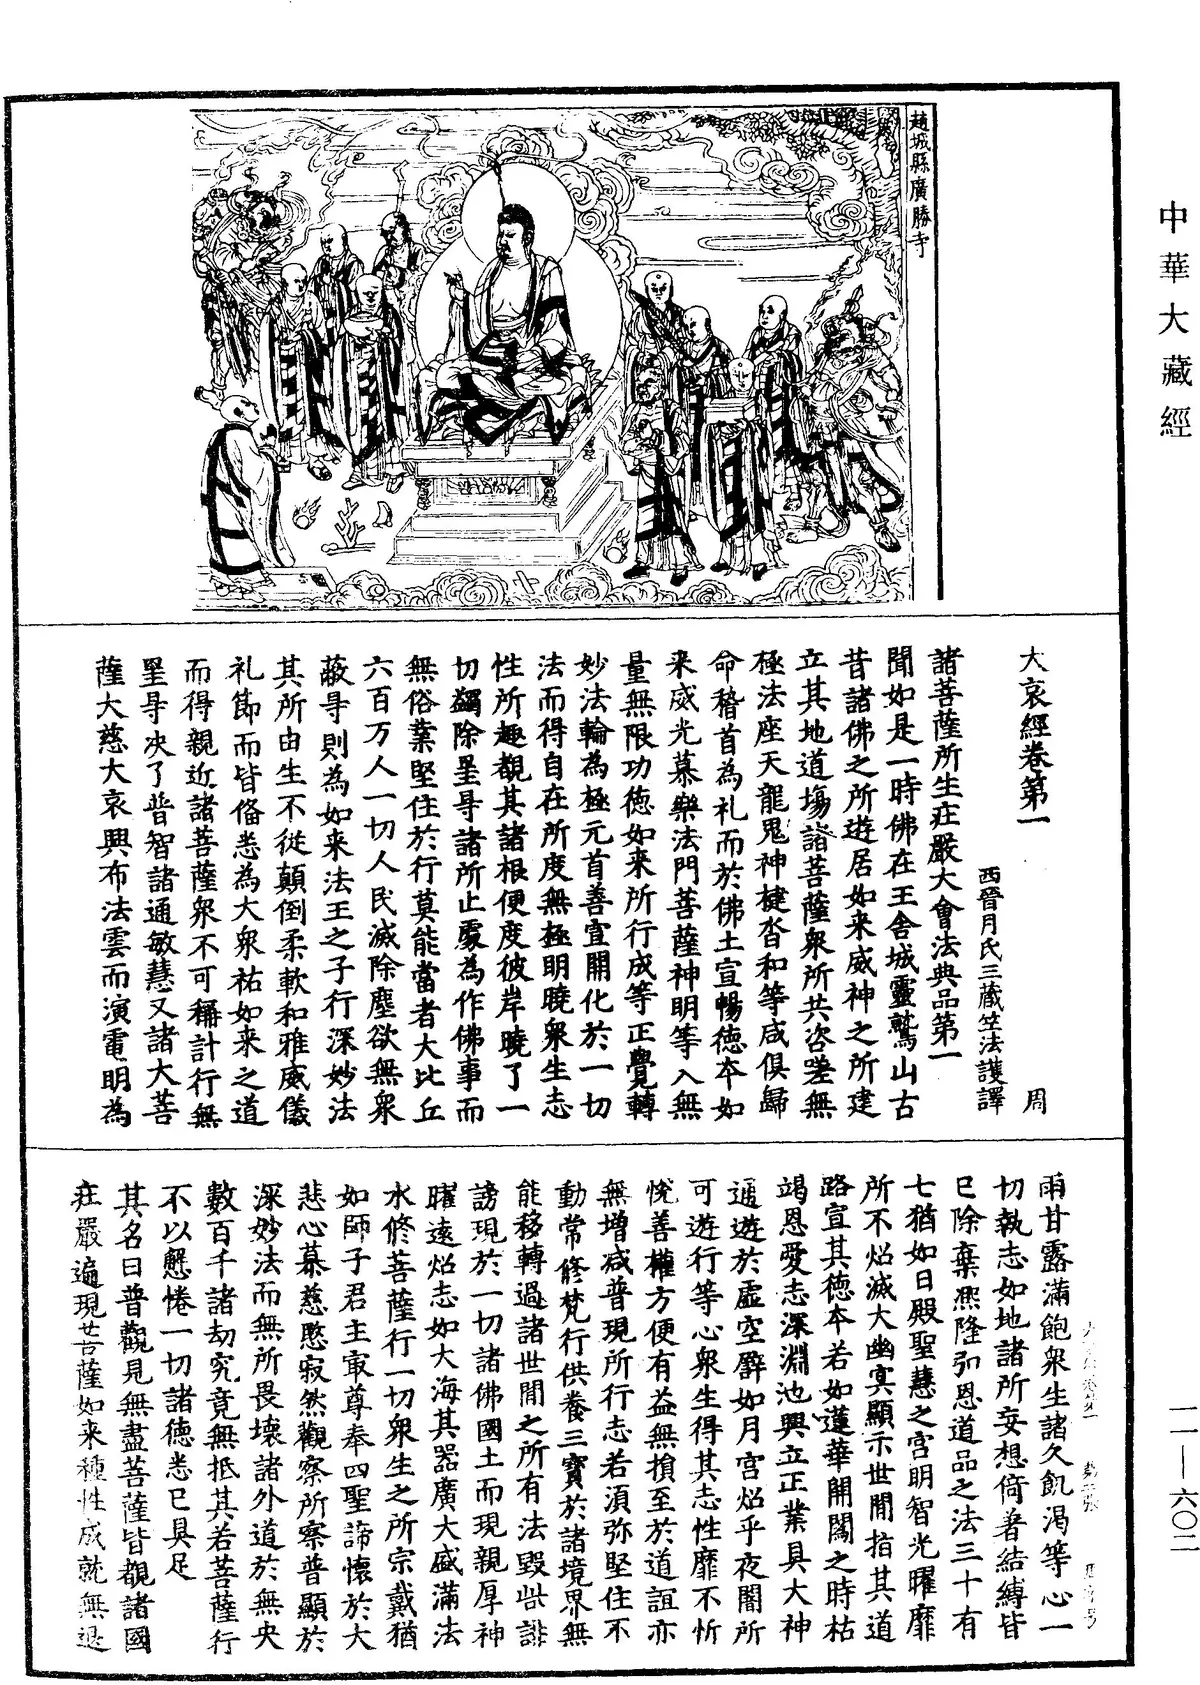 中華大藏經
趙城縣廣勝寺
大哀經卷第一
周
西晉月氏三藏竺法護譯
諸菩薩所生莊嚴大會法典品第一
聞如是一時佛在王舍城靈鷲山古
昔諸佛之所遊居如来威神之所建
立其地道塲諸菩薩衆所共咨嗟無
極法座天龍鬼神揵沓和等咸俱歸
命稽首為礼而於佛土宣暢德本如
来威光慕樂法門菩薩神明等入無
量無限功德如来所行成等正覺轉
妙法輪為極元首善宜開化於一切
法而得自在所度無極明曉衆生志
性所趣觀其諸根便度彼岸曉了一
切蠲除罣㝵諸所止處為作佛事而
無俗業堅住於行莫能當者大比丘
六百万人一切人民滅除塵欲無衆
蔽㝵則為如来法王之子行深妙法
其所由生不從顛倒柔軟和雅威儀
礼節而皆俻悉為大衆祐如来之道
而得親近諸菩薩衆不可稱計行無
罣㝵决了普智諸通敏慧又諸大菩
薩大慈大哀興布法雲而演電明為
雨甘露滿飽衆生諸久飢渴等心一
切執志如地諸所妄想倚著結縛皆
已除棄熈隆弘恩道品之法三十有
七猶如日殿聖慧之宫明智光曜靡
所不炤滅大幽冥顯示世間指其道
路宣其德本若如蓮華開闔之時枯
竭恩愛志深淵池興立正業具大神
通遊於虛空譬如月宫炤乎夜闇所
可遊行等心衆生得其志性靡不忻
悅善權方便有益無損至於道誼亦
無增減普現所行志若須弥堅住不
動常修梵行供養三寶於諸境界無
能移轉過諸世間之所有法毀呰誹
謗現於一切諸佛國土而現親厚神
曜遠炤志如大海其器廣大盛滿法
水修菩薩行一切衆生之所宗戴猶
如師子君主㝡尊奉四聖諦懷於大
悲心慕慈愍寂然觀察所察普顯於
深妙法而無所畏壞諸外道於無央
數百千諸劫究竟無抵其若菩薩行
不以懈惓一切諸德悉已具足
其名曰普觀見無盡菩薩皆觀諸國
莊嚴遍現菩薩如来種性成就無退
一一—六〇二